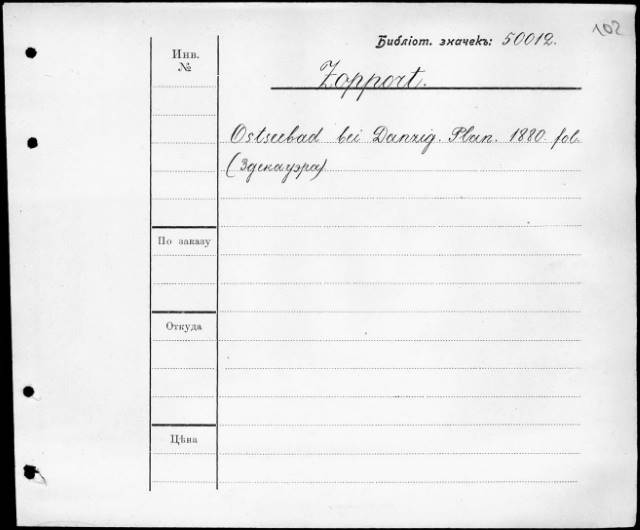 102
Библіот. значекъ: 50012.
Инв.
№
Zopport.
Ostseebad bei Danzig. Plan. 1880. fol.
(Здекауэра)
По заказу
Откуда
Цѣна